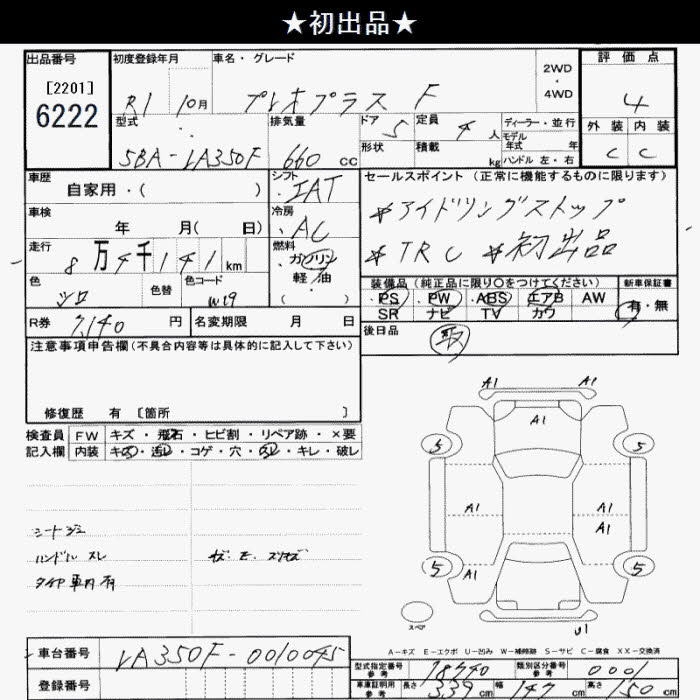 ★初出品★
出品番号
[2201]
6222
初度登録年月
R1 10月
車名・グレード
プレオプラス F
2WD
・
4WD
評価点
4
外装 内装
C C
型式
5BA-LA350F
排気量
660 cc
ドア 5
形状
定員 4 人
積載 kg
ディーラー・並行
モデル年式 年
ハンドル 左・右
車歴
自家用・( )
シフト
IAT
セールスポイント (正常に機能するものに限ります)
*アイドリングストップ
*TRC *初出品
車検
年 月( 日)
冷房
AC
走行
8万4千141km
燃料
ガソリン
軽油
( )
色
シロ
色替
色コード
W19
装備品 (純正品に限り○をつけてください)
・PS ・PW ・ABS ・エアB AW
SR ナビ TV カワ
新車保証書
有・無
R券
7,140 円
名変期限 月 日
後日品
取
注意事項申告欄(不具合内容等は具体的に記入して下さい)
修復歴 有 [箇所 ]
検査員記入欄
FW キズ・飛石・ヒビ割・リペア跡・×要
内装 キズ・汚レ・コゲ・穴・スレ・キレ・破レ
シートシミ
ハンドル スレ
タイヤ車内有
A1 A1
A1
5 5
A1 A1
A1
5 5
A1
U1
スペア
A-キズ E-エクボ U-凹み W-補修跡 S-サビ C-腐食 XX-交換済
車台番号
LA350F-0010045
登録番号
型式指定番号 参考
18740
類別区分番号 参考
0001
車庫証明用 参考
長さ 339 cm 幅 147 cm 高さ 150 cm